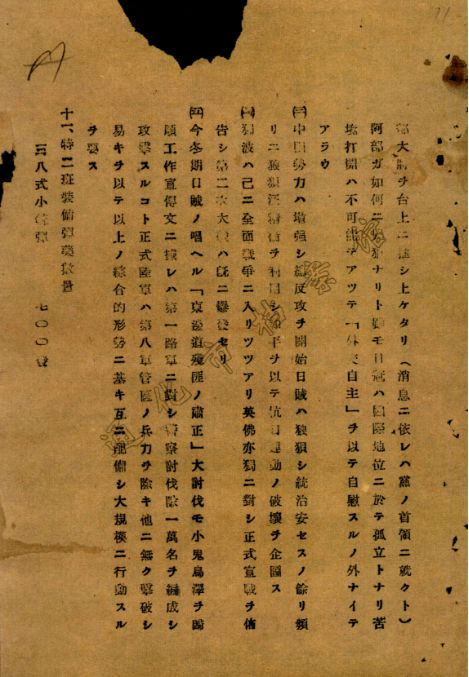 大將ヲ台上ニ シ上ケタリ（消息ニ依レハ黨ノ首領ニ就クト）
阿部ガ如何ニ ナリト雖モ日冦ハ國際地位ニ於テ孤立トナリ苦
境打開ハ不可能 アツテ「外交自主」ヲ以テ自慰スルノ外ナイテ
アラウ
(三)中國勢力ハ增强シ總反攻ヲ開始日賊ハ狼狽シ統治安セスノ餘リ頻
リニ 汪精衛ヲ利用シ和平ヲ以テ抗日運動ノ破壞ヲ企圖ス
(四)獨波ハ已ニ全面戰爭ニ入リツツアリ英佛亦獨ニ對シ正式宣戰ヲ佈
告シ第二次大戰ハ旣ニ爆發セリ
(五)今冬期日賊ノ唱ヘル「東邊道殘匪ノ肅正」大討伐モ小鬼烏澤ヲ歸
順工作宣傳文ニ據レハ第一路軍ニ對シ警察討伐隊一萬名ヲ編成シ
攻擊スルコト正式陸軍ハ第八軍管區ノ兵力ヲ除キ他ニ無ク擊破シ
易キヲ以テ以上ノ綜合的形勢ニ基キ互ニ配備シ大規模ニ行動スル
ヲ要ス
十一、特二班裝備彈藥數量
三八式小銃彈 七〇〇發
通化市档案
71